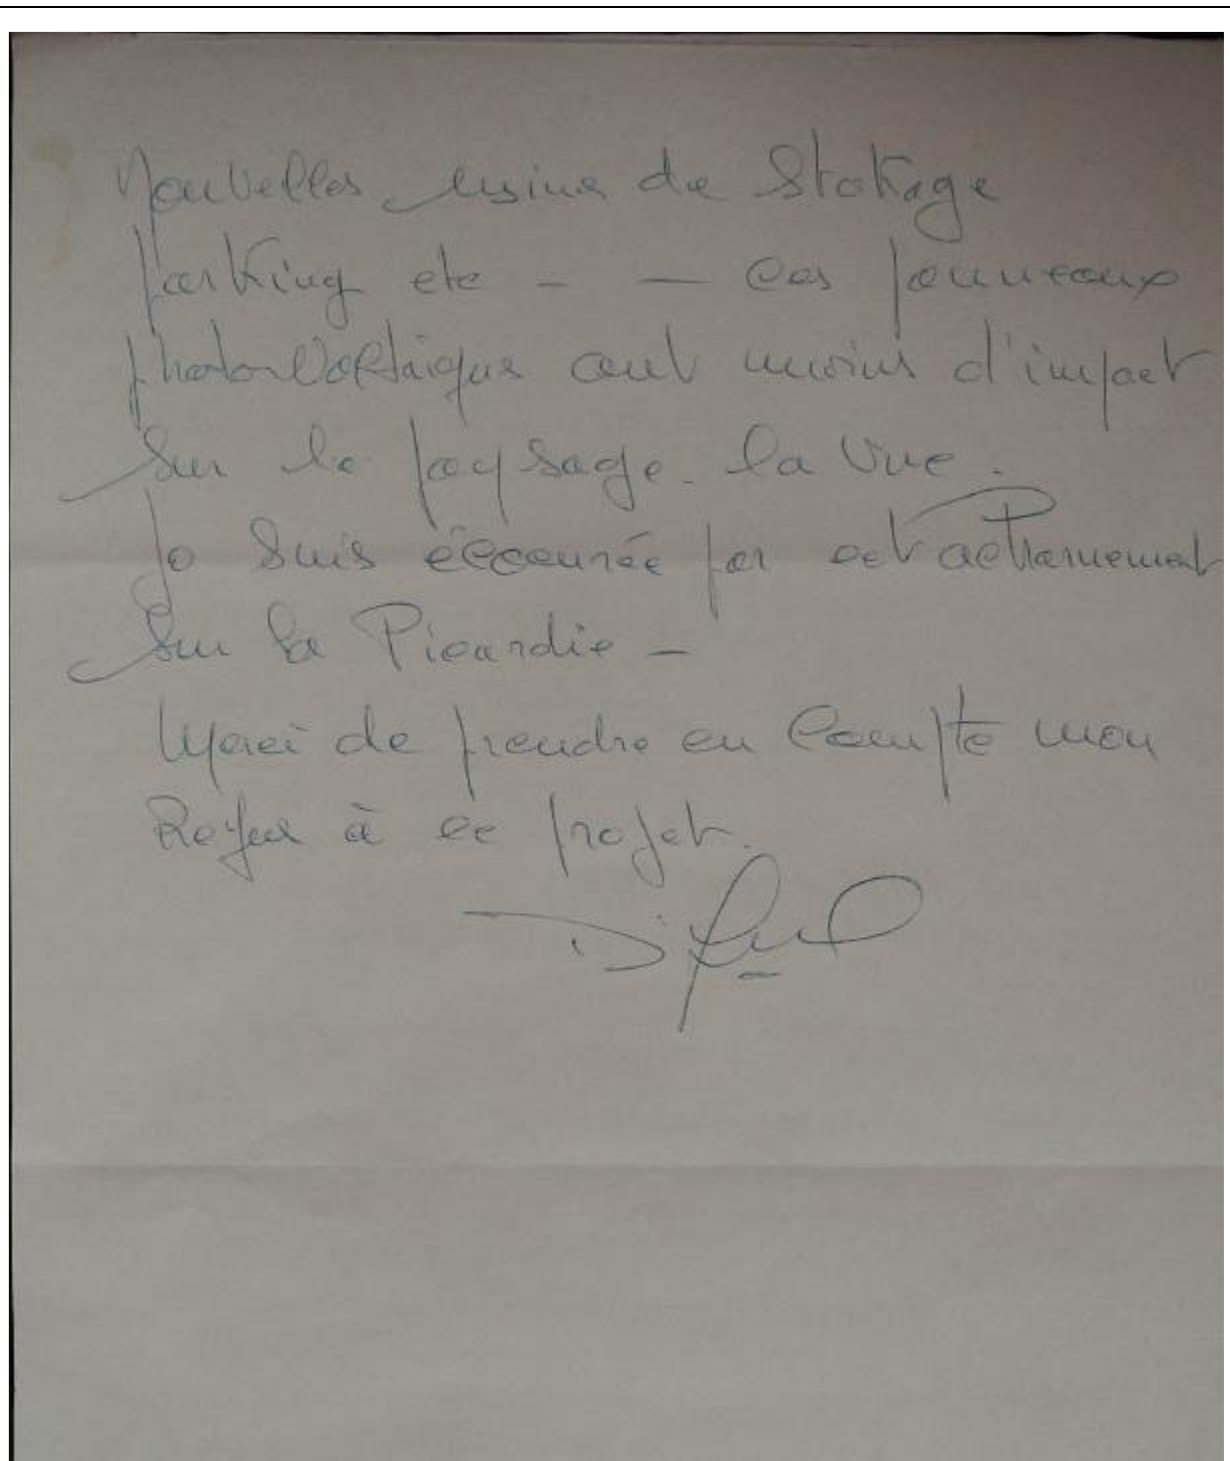 Nouvelles usine de Stokage
Parking etc - — Ces panneaux
photovoltaïques ont moins d'impact
Sur le paysage - la Vue.
Je Suis éccœurée par cet acharnement
Sur la Picardie -
Merci de prendre en Compte mon
Refus à ce projet.